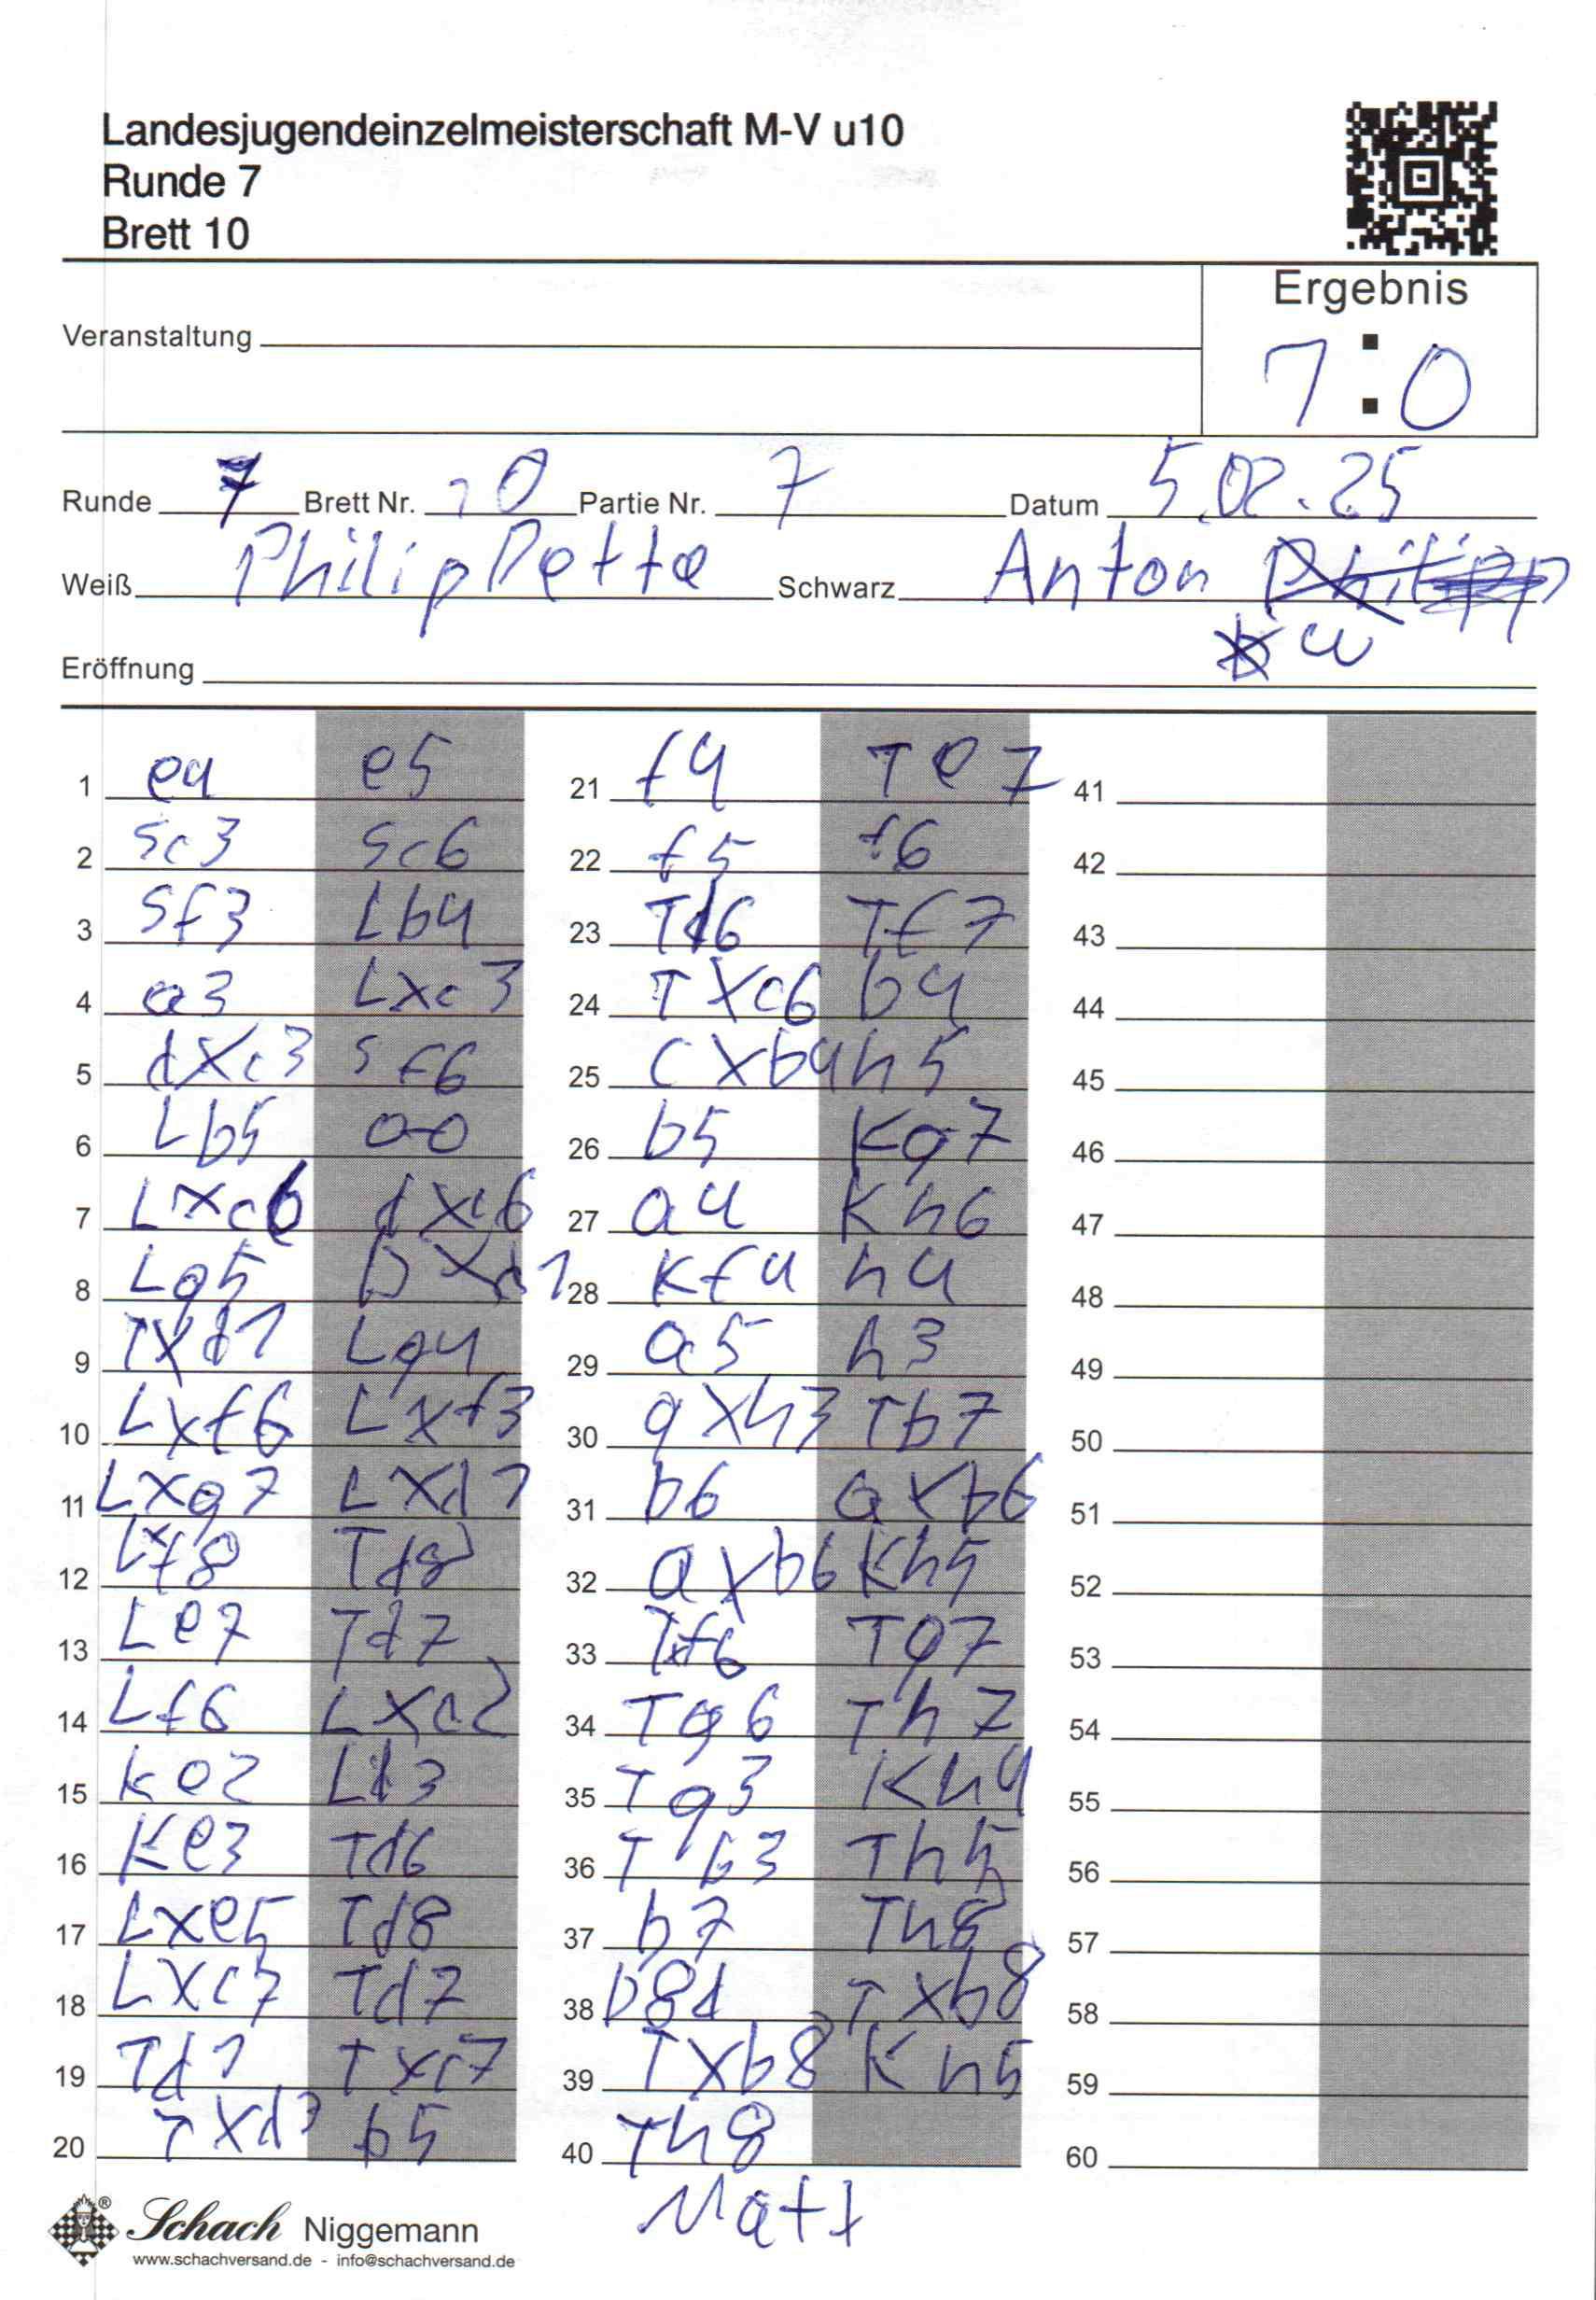 Landesjugendeinzelmeisterschaft M-V u10
Runde 7
Brett 10
Ergebnis
Veranstaltung
1:0
Runde 7 Brett Nr. 10 Partie Nr. 7 Datum 5.02.25
Weiß Philip Dette Schwarz Anton
Eröffnung
1 e4 e5
2 Sc3 Sc6
3 Sf3 Lb4
4 a3 Lxc3
5 dxc3 Sf6
6 Lb5 0-0
7 Lxc6 dxc6
8 Lg5 Dxd1
9 Txd1 Lg4
10 Lxf6 Lxf3
11 Lxg7 Lxd1
12 Lxf8 Td8
13 Le7 Td7
14 Lf6 Lxc2
15 Ke2 Ld3
16 Ke3 Td6
17 Lxe5 Td8
18 Lxc7 Td7
19 Td1 Txc7
20 Txd3 b5
21 f4 Te7
22 f5 f6
23 Td6 Tf7
24 Txc6 b4
25 cxb4 h5
26 b5 Kg7
27 a4 Kh6
28 Kf4 h4
29 a5 h3
30 gxh3 Tb7
31 b6 axb6
32 axb6 Kh5
33 Txf6 Tg7
34 Tg6 Th7
35 Tg3 Kh4
36 Tb3 Th5
37 b7 Th8
38 b8d Txb8
39 Txb8 Kh5
40 Th8
Matt
41
42
43
44
45
46
47
48
49
50
51
52
53
54
55
56
57
58
59
60
® Schach Niggemann
www.schachversand.de - info@schachversand.de